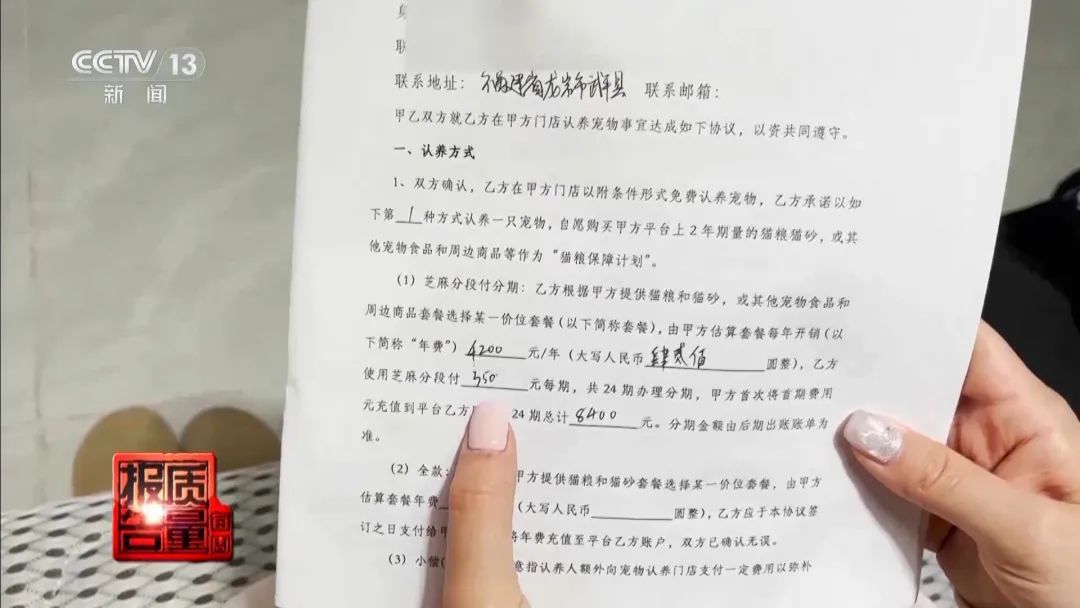 CCTV 13
新闻
联系地址：福建省龙岩市武平县 联系邮箱：
甲乙双方就乙方在甲方门店认养宠物事宜达成如下协议，以资共同遵守。
一、认养方式
1、双方确认，乙方在甲方门店以附条件形式免费认养宠物，乙方承诺以如
下第1种方式认养一只宠物，自愿购买甲方平台上2年期量的猫粮猫砂，或其
他宠物食品和周边商品等作为“猫粮保障计划”。
（1）芝麻分段付分期：乙方根据甲方提供猫粮和猫砂，或其他宠物食品和
周边商品套餐选择某一价位套餐（以下简称套餐），由甲方估算套餐每年开销（以
下简称“年费”）4200元/年（大写人民币肆贰佰圆整），乙方
使用芝麻分段付350元每期，共24期办理分期，甲方首次将首期费用
元充值到平台乙方 24期总计8400元。分期金额由后期出账账单为
准。
（2）全款： 甲方提供猫粮和猫砂套餐选择某一价位套餐，由甲方
估算套餐年费 （大写人民币 圆整），乙方应于本协议签
订之日支付给甲 将年费充值至平台乙方账户，双方已确认无误。
（3）小偿( 意指认养人额外向宠物认养门店支付一定费用以弥补
质量报告